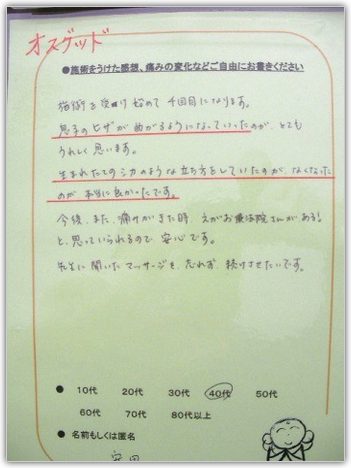 オスグッド
●施術をうけた感想、痛みの変化などご自由にお書きください
施術を受け始めて4回目になります。
息子のヒザが曲がるようになっていったのが、とても
うれしく思います。
生まれたてのシカのような立ち方をしていたのが、なくなった
のが本当に良かったです。
今後、また、痛みがきた時、えがお療法院さんがある!
と、思っていられるので、安心です。
先生に聞いたマッサージを、忘れず、続けさせたいです。
● 10代 20代 30代 40代 50代
60代 70代 80代以上
● 名前もしくは匿名